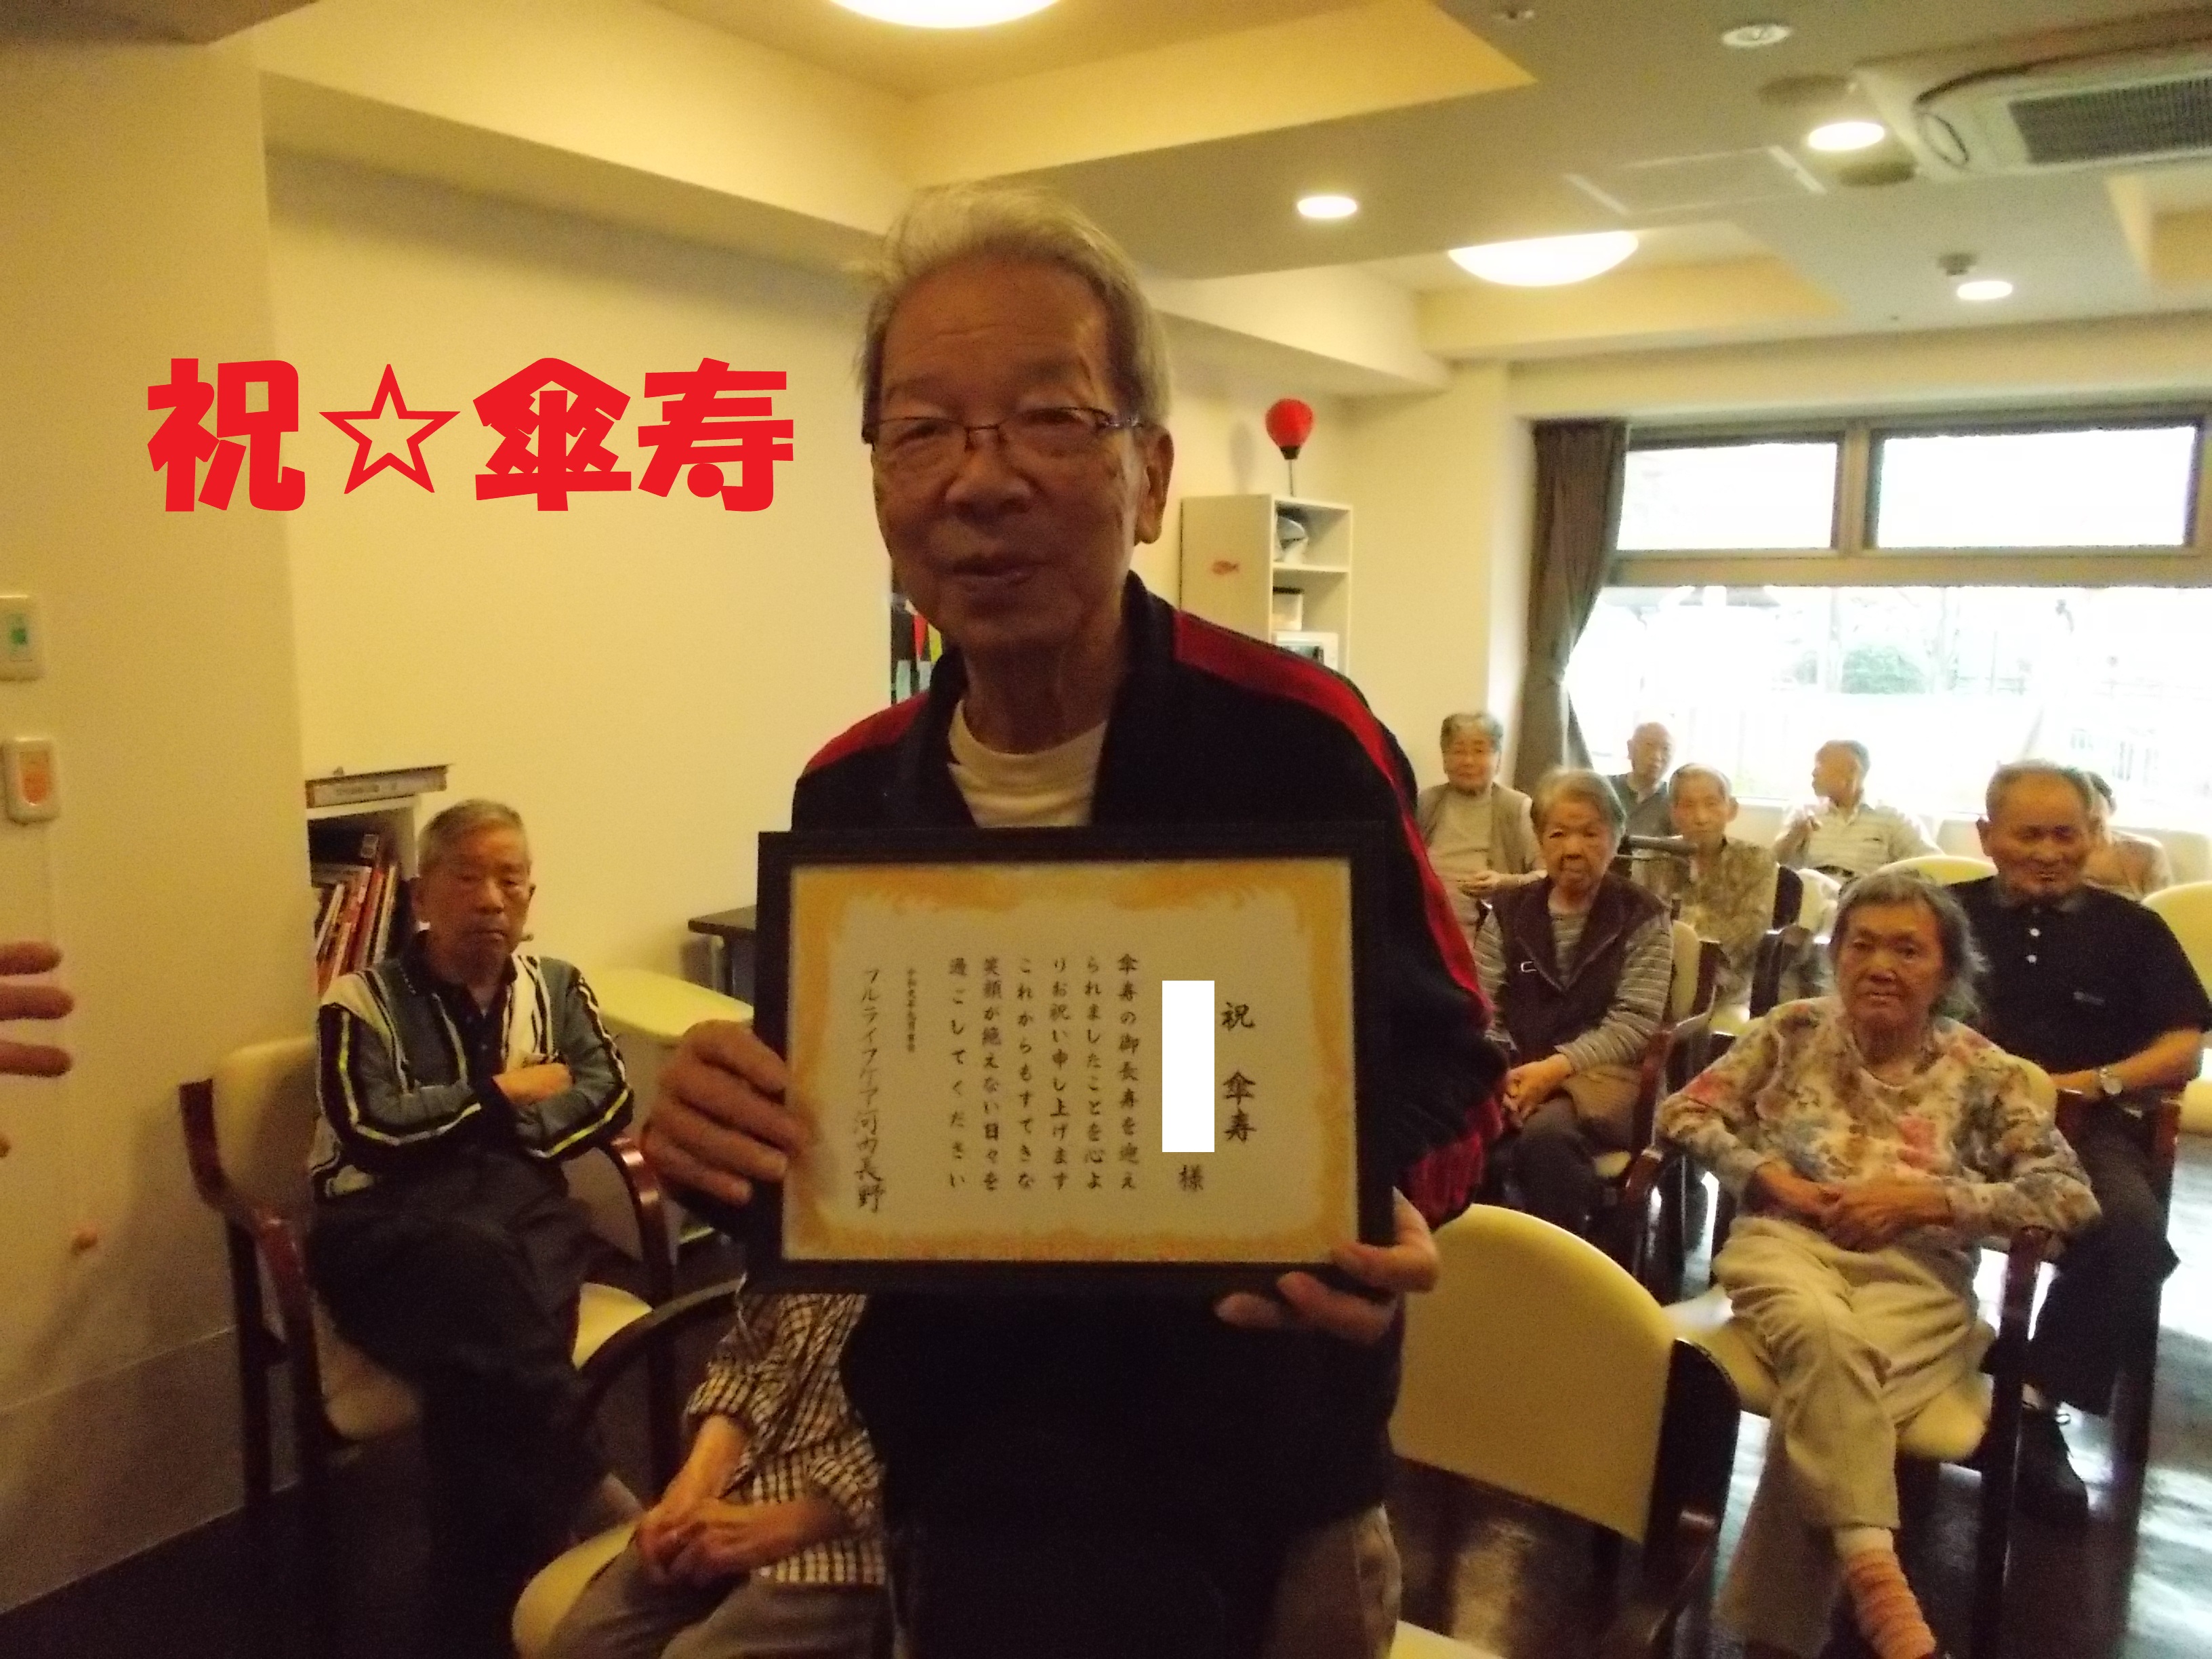 祝☆傘寿
祝　傘寿
様
傘寿の御長寿を迎え
られましたことを心よ
りお祝い申し上げます
これからもすてきな
笑顔が絶えない日々を
過ごしてください
フルライフケア河内長野